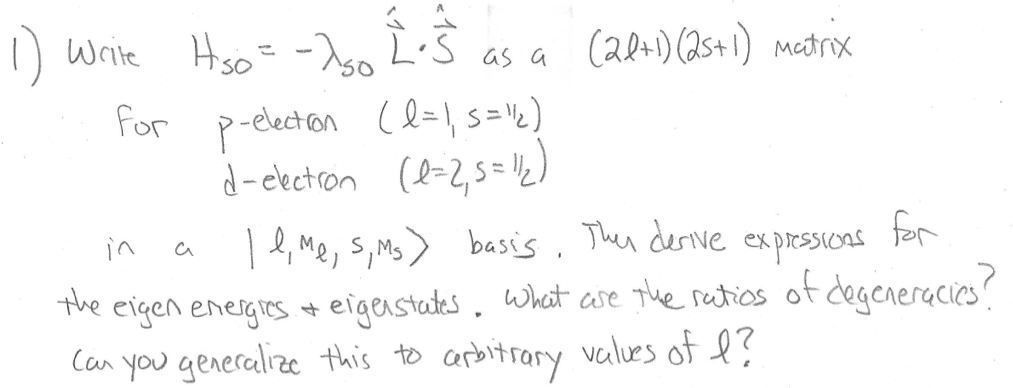 1) Write H_SO = -λ_SO \hat{\vec{L}}·\hat{\vec{S}} as a (2l+1)(2s+1) matrix
for p-electron (l=1, s=1/2)
d-electron (l=2, s=1/2)
in a |l, m_l, s, m_s> basis. Then derive expressions for
the eigen energies + eigenstates. What are the ratios of degeneracies?
Can you generalize this to arbitrary values of l?